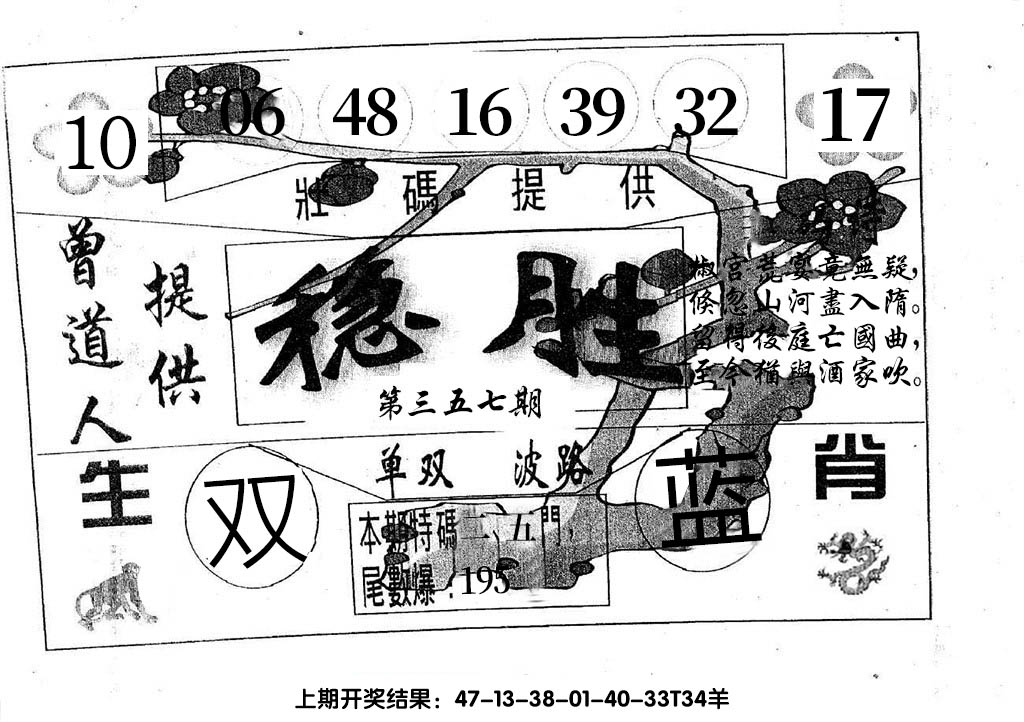 10 06 48 16 39 32 17
壯碼提供
曾道人
提供
稳胜
第三五七期
宮荒宴竟無疑,
倏忽山河盡入隋。
留得後庭亡國曲,
至今猶與酒家吹。
单双 波路
生肖
双
蓝
本期特碼二、五門,
尾數爆:195
上期开奖结果:47-13-38-01-40-33T34羊